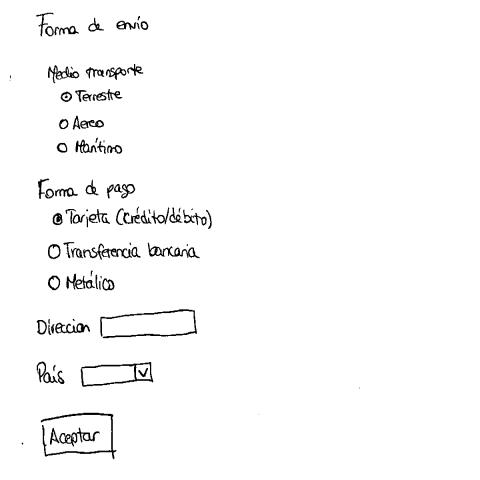 Forma de envío
Medio transporte
Terrestre
Aereo
Marítimo
Forma de pago
Tarjeta (Crédito/débito)
Transferencia bancaria
Metálico
Direccion
País
Aceptar